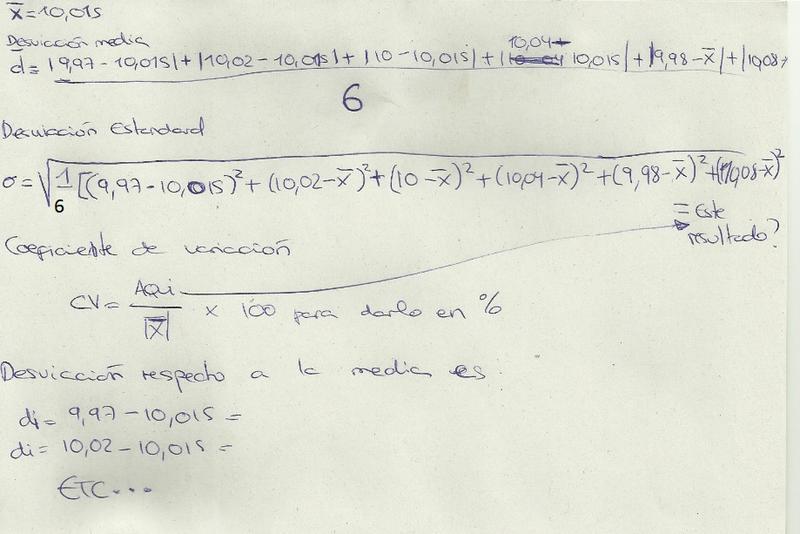 x̄=10,015
Desviación media
d= |9,97-10,015|+|10,02-10,015|+|10-10,015|+|10,04+ 10,015|+|9,98-x̄|+|10,08+
6
Desviación Estandard
σ=√1/6 [(9,97-10,015)²+(10,02-x̄)²+(10-x̄)²+(10,04-x̄)²+(9,98-x̄)²+(10,08-x̄)²
= Este
resultado?
Coeficiente de variación
CV= AQUI/|x̄| x 100 para darlo en %
Desviación respecto a la media es
di= 9,97-10,015=
di= 10,02-10,015=
ETC...